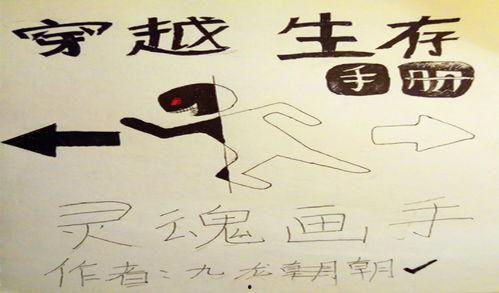 穿越生存
手册
灵魂画手
作者：九龙朝朝